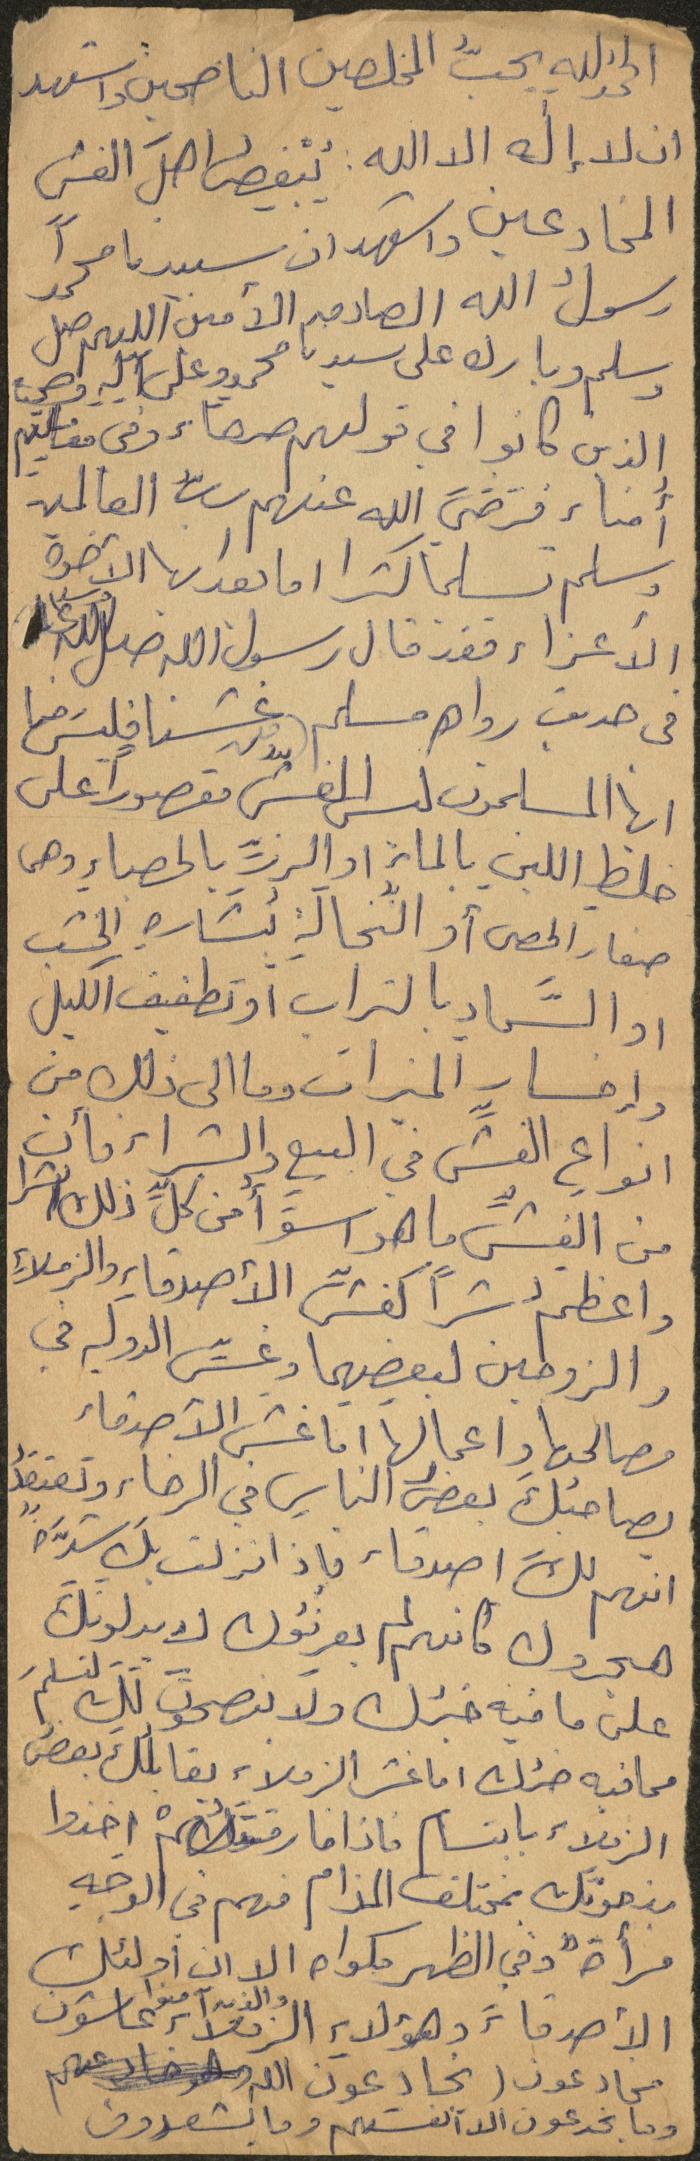 الحمد لله يحبُّ المخلصين الناصحين واشهد
ان لا إله الا الله : يُبْغِضُ اهلَ الغش
المخادعين واشهد ان سيدنا محمداً
رسولُ الله الصادق الأمين اللهم صل
وسلم وبارك على سيدنا محمدٍ وعلى آلهِ وصحبه
الذين كانوا في قولهم صرحاء وفى معاملتهم
أمناء فرَضىَ الله عنهم ربّ العالمين
وسلم تسليما كثيرا اما بعد ايها الأخوة
الأعزاء فقد قال رسول الله صلى الله عليه وسلم
فى حديث رواه مسلم (من غشنا فليسَ منا
ايها المسلمون ليس الغش مقصوراً على
خلطِ اللبنِ بالماءِ او الرزِّ بالحصباءِ وهى
صغار الحصى أو النُّخالةِ بنُشارةِ الخشب
او السَّمادِ بالتراب أو تطفيف الكيل
وإخسارِ الميزان وما الى ذلك من
انواعِ الغشِّ في البيع والشراء فأن
من الغشِّ ما هو اسوَأُ من كلِّ ذلك اثرا
واعظم شراً كغشِّ الأصدقاءِ والزملاءِ
والزوجين لبعضِهما وغشِّ الدولهِ في
مصالحها واعمالها اما غش الأصدقاء
يصاحبُكَ بعضُ الناسِ في الرخاء وتعتقدُ
انهم لكَ اصدقاء فإذا نزلت بكَ شدَّةٌ
هجروك كانهم لم يعرفوك لا يدلونكَ
على ما فيه خيرُك ولا ينصحونَ لكَ لتسلمَ
مما فيه ضرُك اما غش الزملاء يقابلُكَ بعضُ
الزملاء بابتسام فاذا فارقتَهُمْ اخذوا
يذمونَك بمختلف المذام فهم في الوجهِ
مرأةٌ وفي الظهر مكواه الا ان أولئك
الأصدقاءَ وهؤلاءِ الزملاء غاشون
مخادعون (يخادعون الله والذين آمنوا
وما يخدعون الا انفسهم وما يشعرون